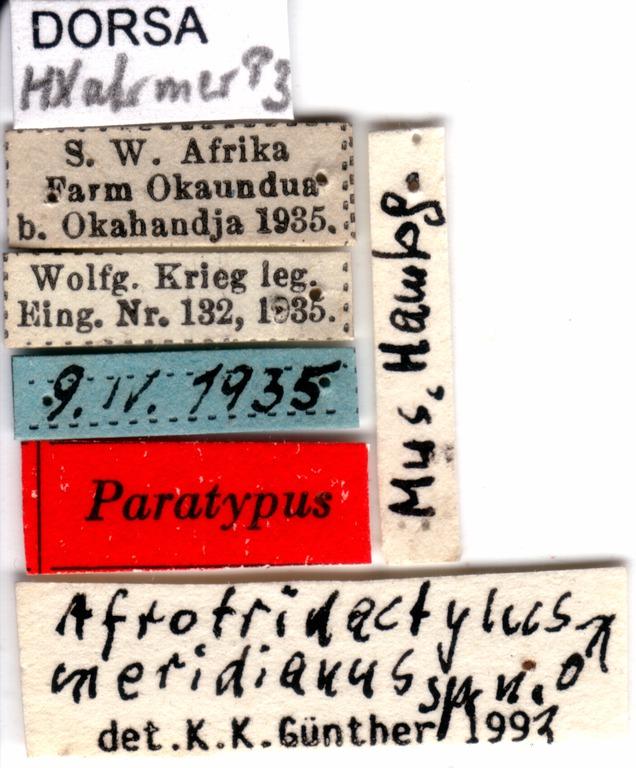 DORSA
S. W. Afrika
Farm Okaundua
b. Okahandja 1935.
Wolfg. Krieg leg.
Eing. Nr. 132, 1935.
9. IV. 1935
Paratypus
Mus. Hambg.
Afrotridactylus
meridianus sp. n. ♂
det. K. K. Günther 1992